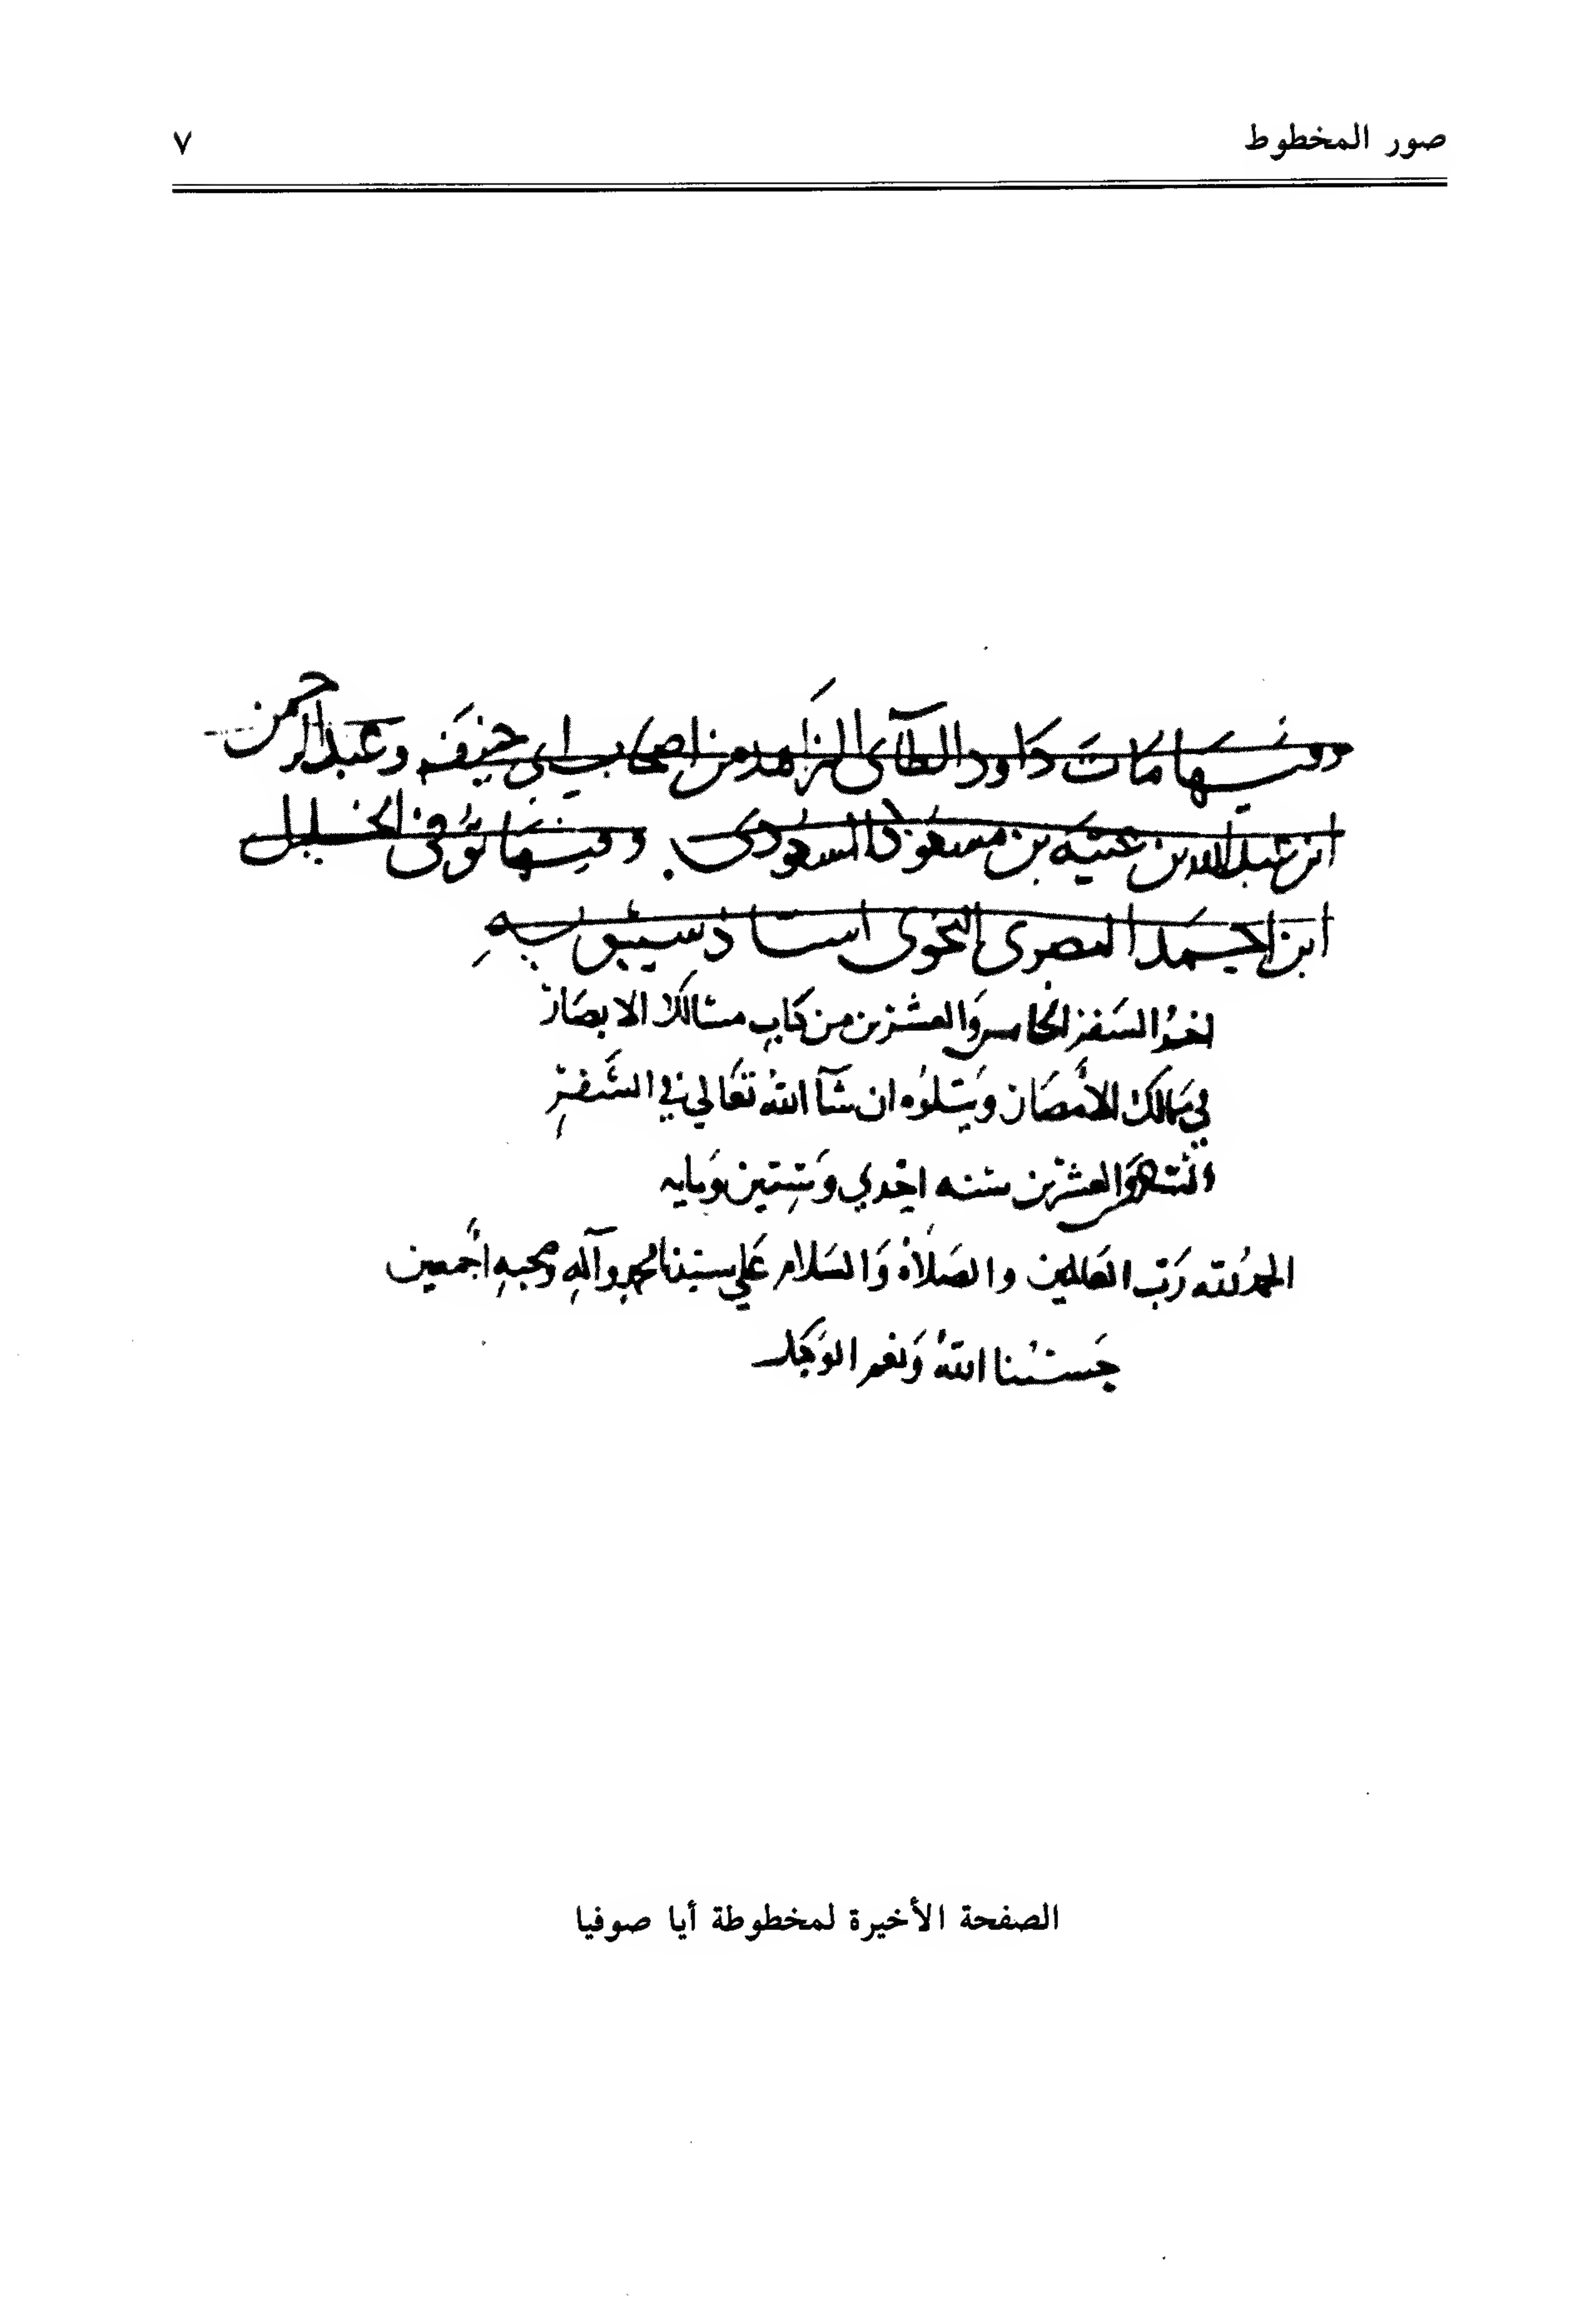 صور المخطوط
٧
وفيها مات داود الطآى الزاهد من اصحاب ابى حنيفه وعبد الرحمن
ابن عبد الله بن عتبه بن مسعود المسعودى. وفيها توفى الخليل
ابن احمد البصرى النحوى استاذ سيبويه
اخر السفر الخامس والعشرين من كتاب مسالك الابصار
في ممالك الأمصار ويتلوه ان شآ الله تعالي في السفر
والعشرين سنه احدي وستين ومايه
الحمد لله رب العالمين والصلاة والسلام علي سيدنا محمد وآله وصحبه أجمعين
حسبنا الله ونعم الوكيل
الصفحة الأخيرة لمخطوطة أيا صوفيا